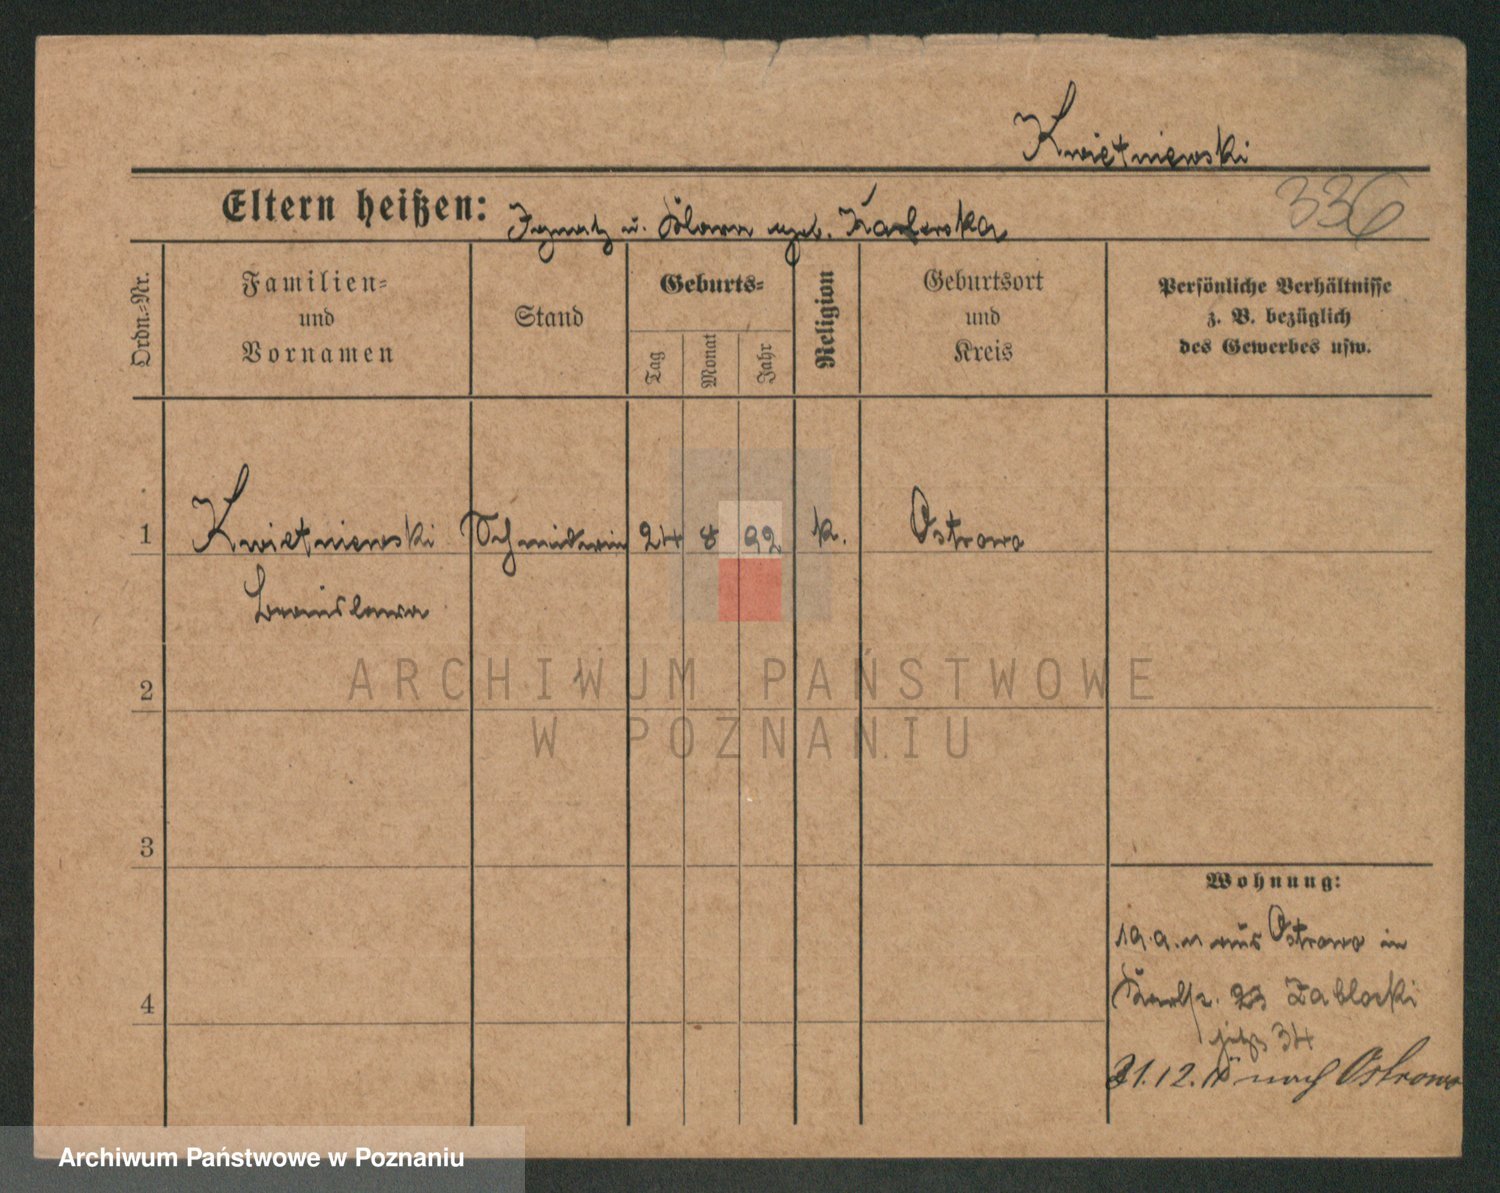 Kwietniewski
336
Eltern heißen: Ignatz u. Klara geb.
Ordn.-Nr.
Familien-
und
Vornamen
Stand
Geburts-
Tag
Monat
Jahr
Religion
Geburtsort
und
Kreis
Persönliche Verhältnisse
z. B. bezüglich
des Gewerbes usw.
1 Kwietniewski Schneiderin 24 8 92 k. Ostrowo
Bronislawa
2
3
4
Wohnung:
19.9.11 aus Ostrowo in
23 Zablocki
jetzt 34
31.12.11 nach Ostrowo
ARCHIWUM PAŃSTWOWE
W POZNANIU
Archiwum Państwowe w Poznaniu